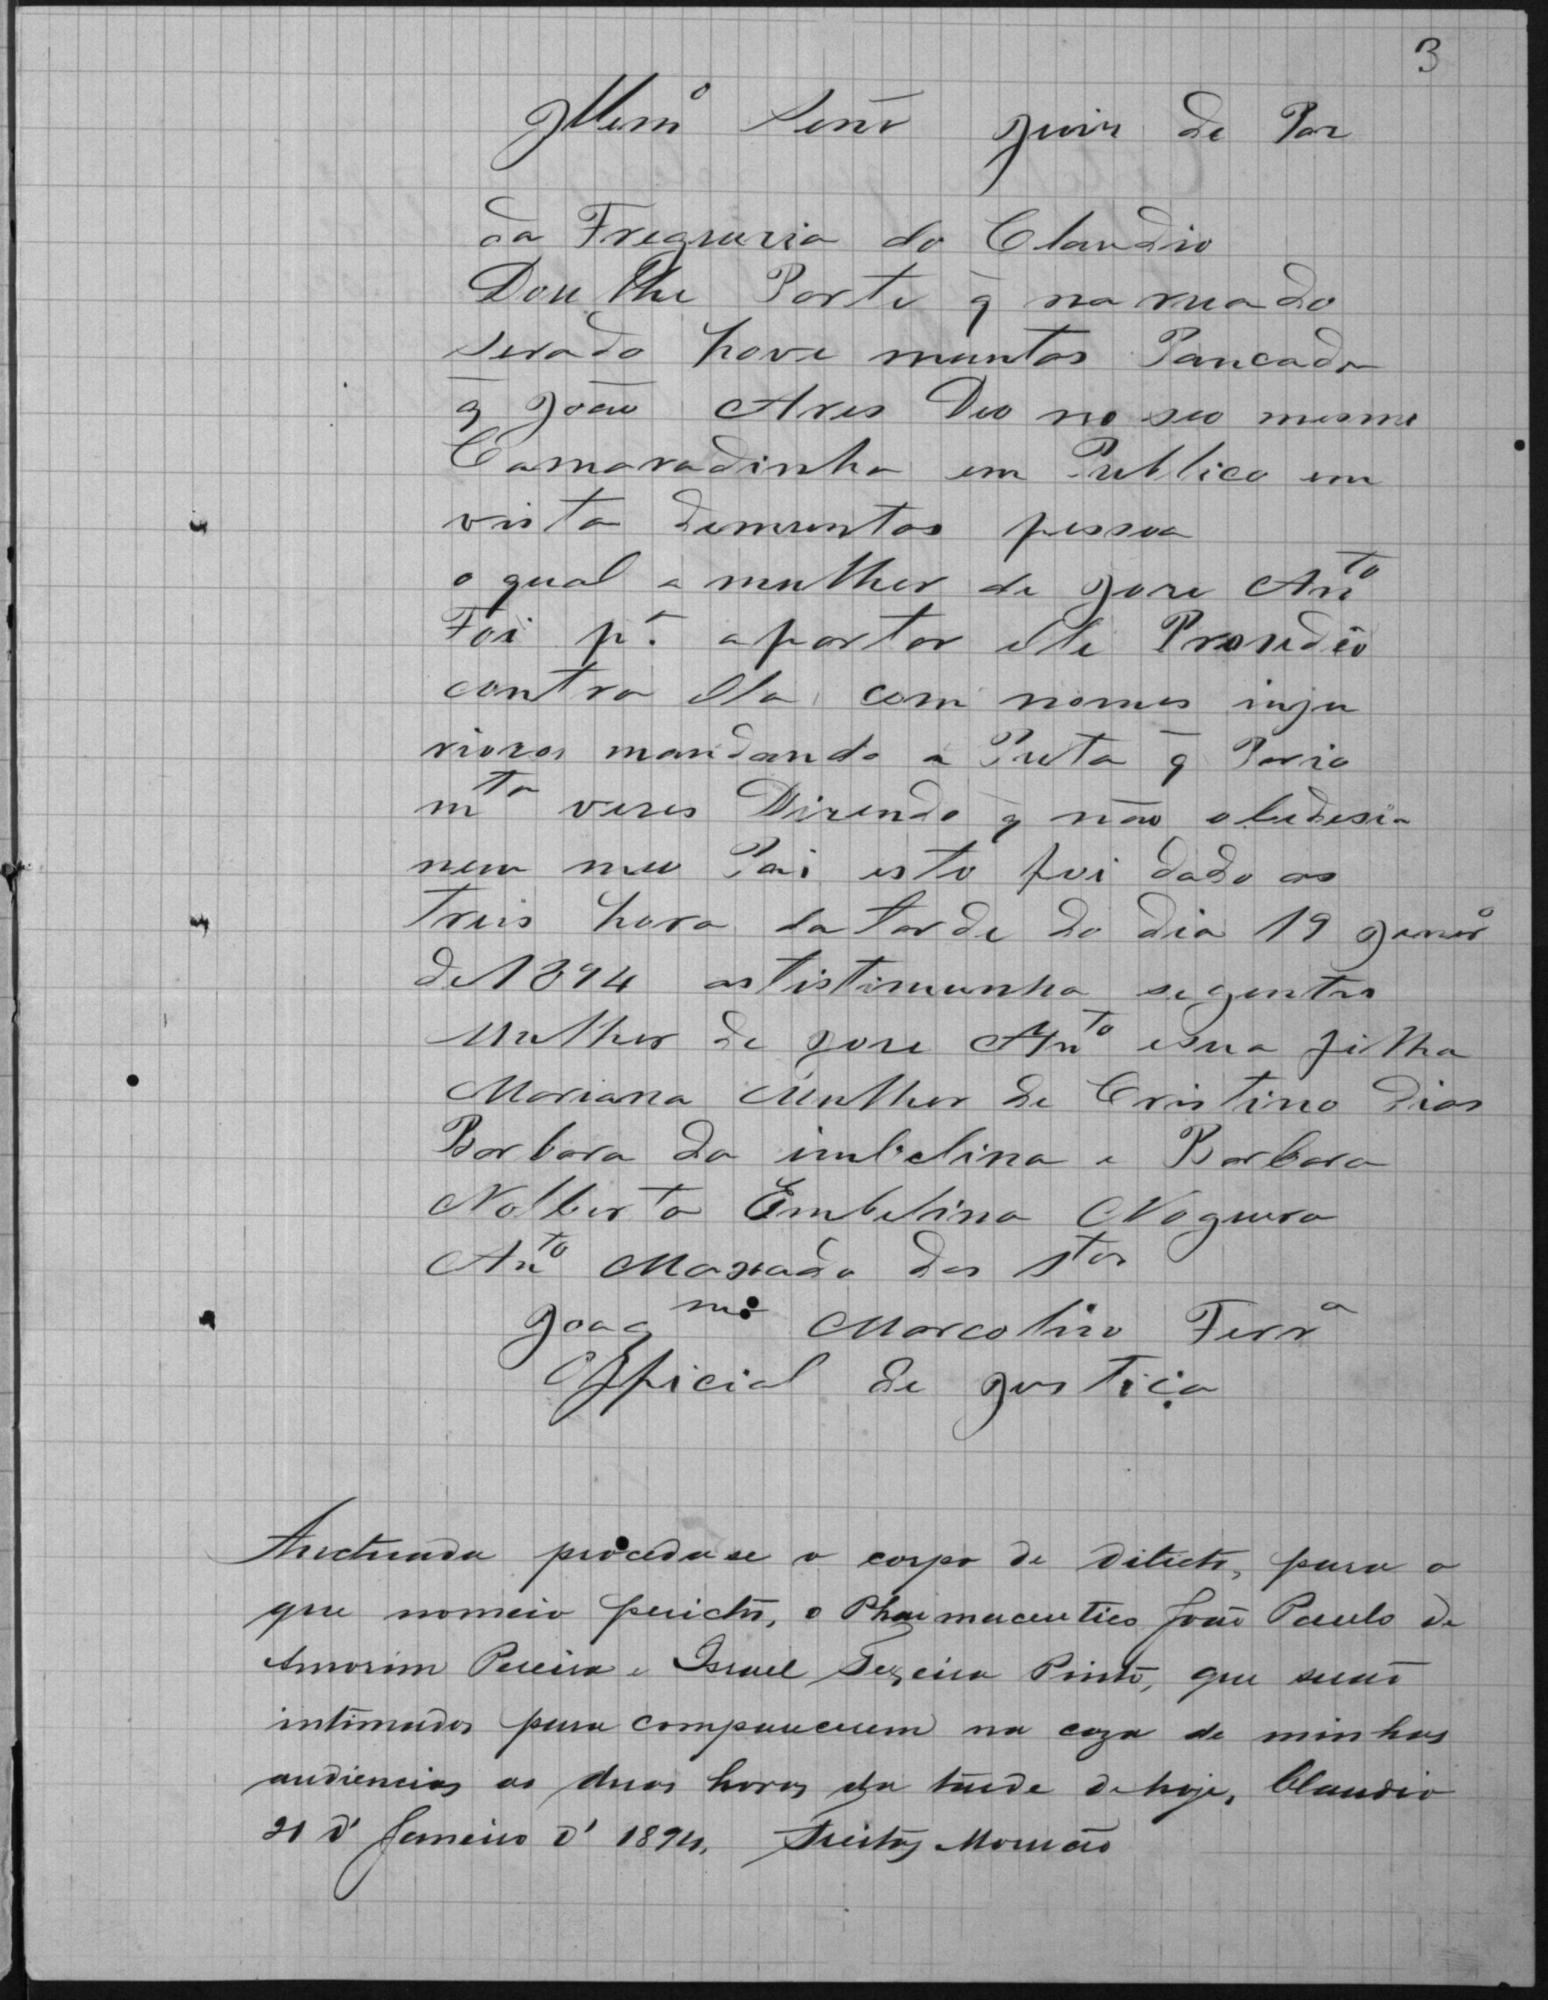 3
Illmº Senr Juiz de Paz
da Freguezia do Claudio
Dou lhe Parte q̃ na rua do
serado hove muntas Pancada
q̃ João Ares Deo no seo mesmo
Camaradinha em Publico em
vista demuntas pessoa
o qual a mulher de Joze Antº
Foi pª apartar elle Prosedeo
contra ella com nomes inju
riozos mandando a Puta q̃ Pario
mta vezes Dizendo q̃ não obedesia
nem meu Pai isto foi dado as
treis hora da tarde do dia 19 Janrº
de 1894 as tistimunha segentes
Mulher de Joze Antº e sua filha
Mariana Mulher de Cristino Dias
Barbara da imbelina e Barbara
Nolberta Embelina Noguera
Antº Maxado dos Stos
Joaqm Marcolino Ferrª
Official de Justiça
Auctuada proceda se o corpo de dilicto, para o
que nomeio perictos, o Pharmaceutico João Paulo de
Amorim Pereira e Israel Texeira Pinto, que serão
intimados para comparecerem na caza de minhas
audiencias as duas horas da tarde de hoje, Claudio
21 d' Janeiro d' 1894. Freitas Mourão